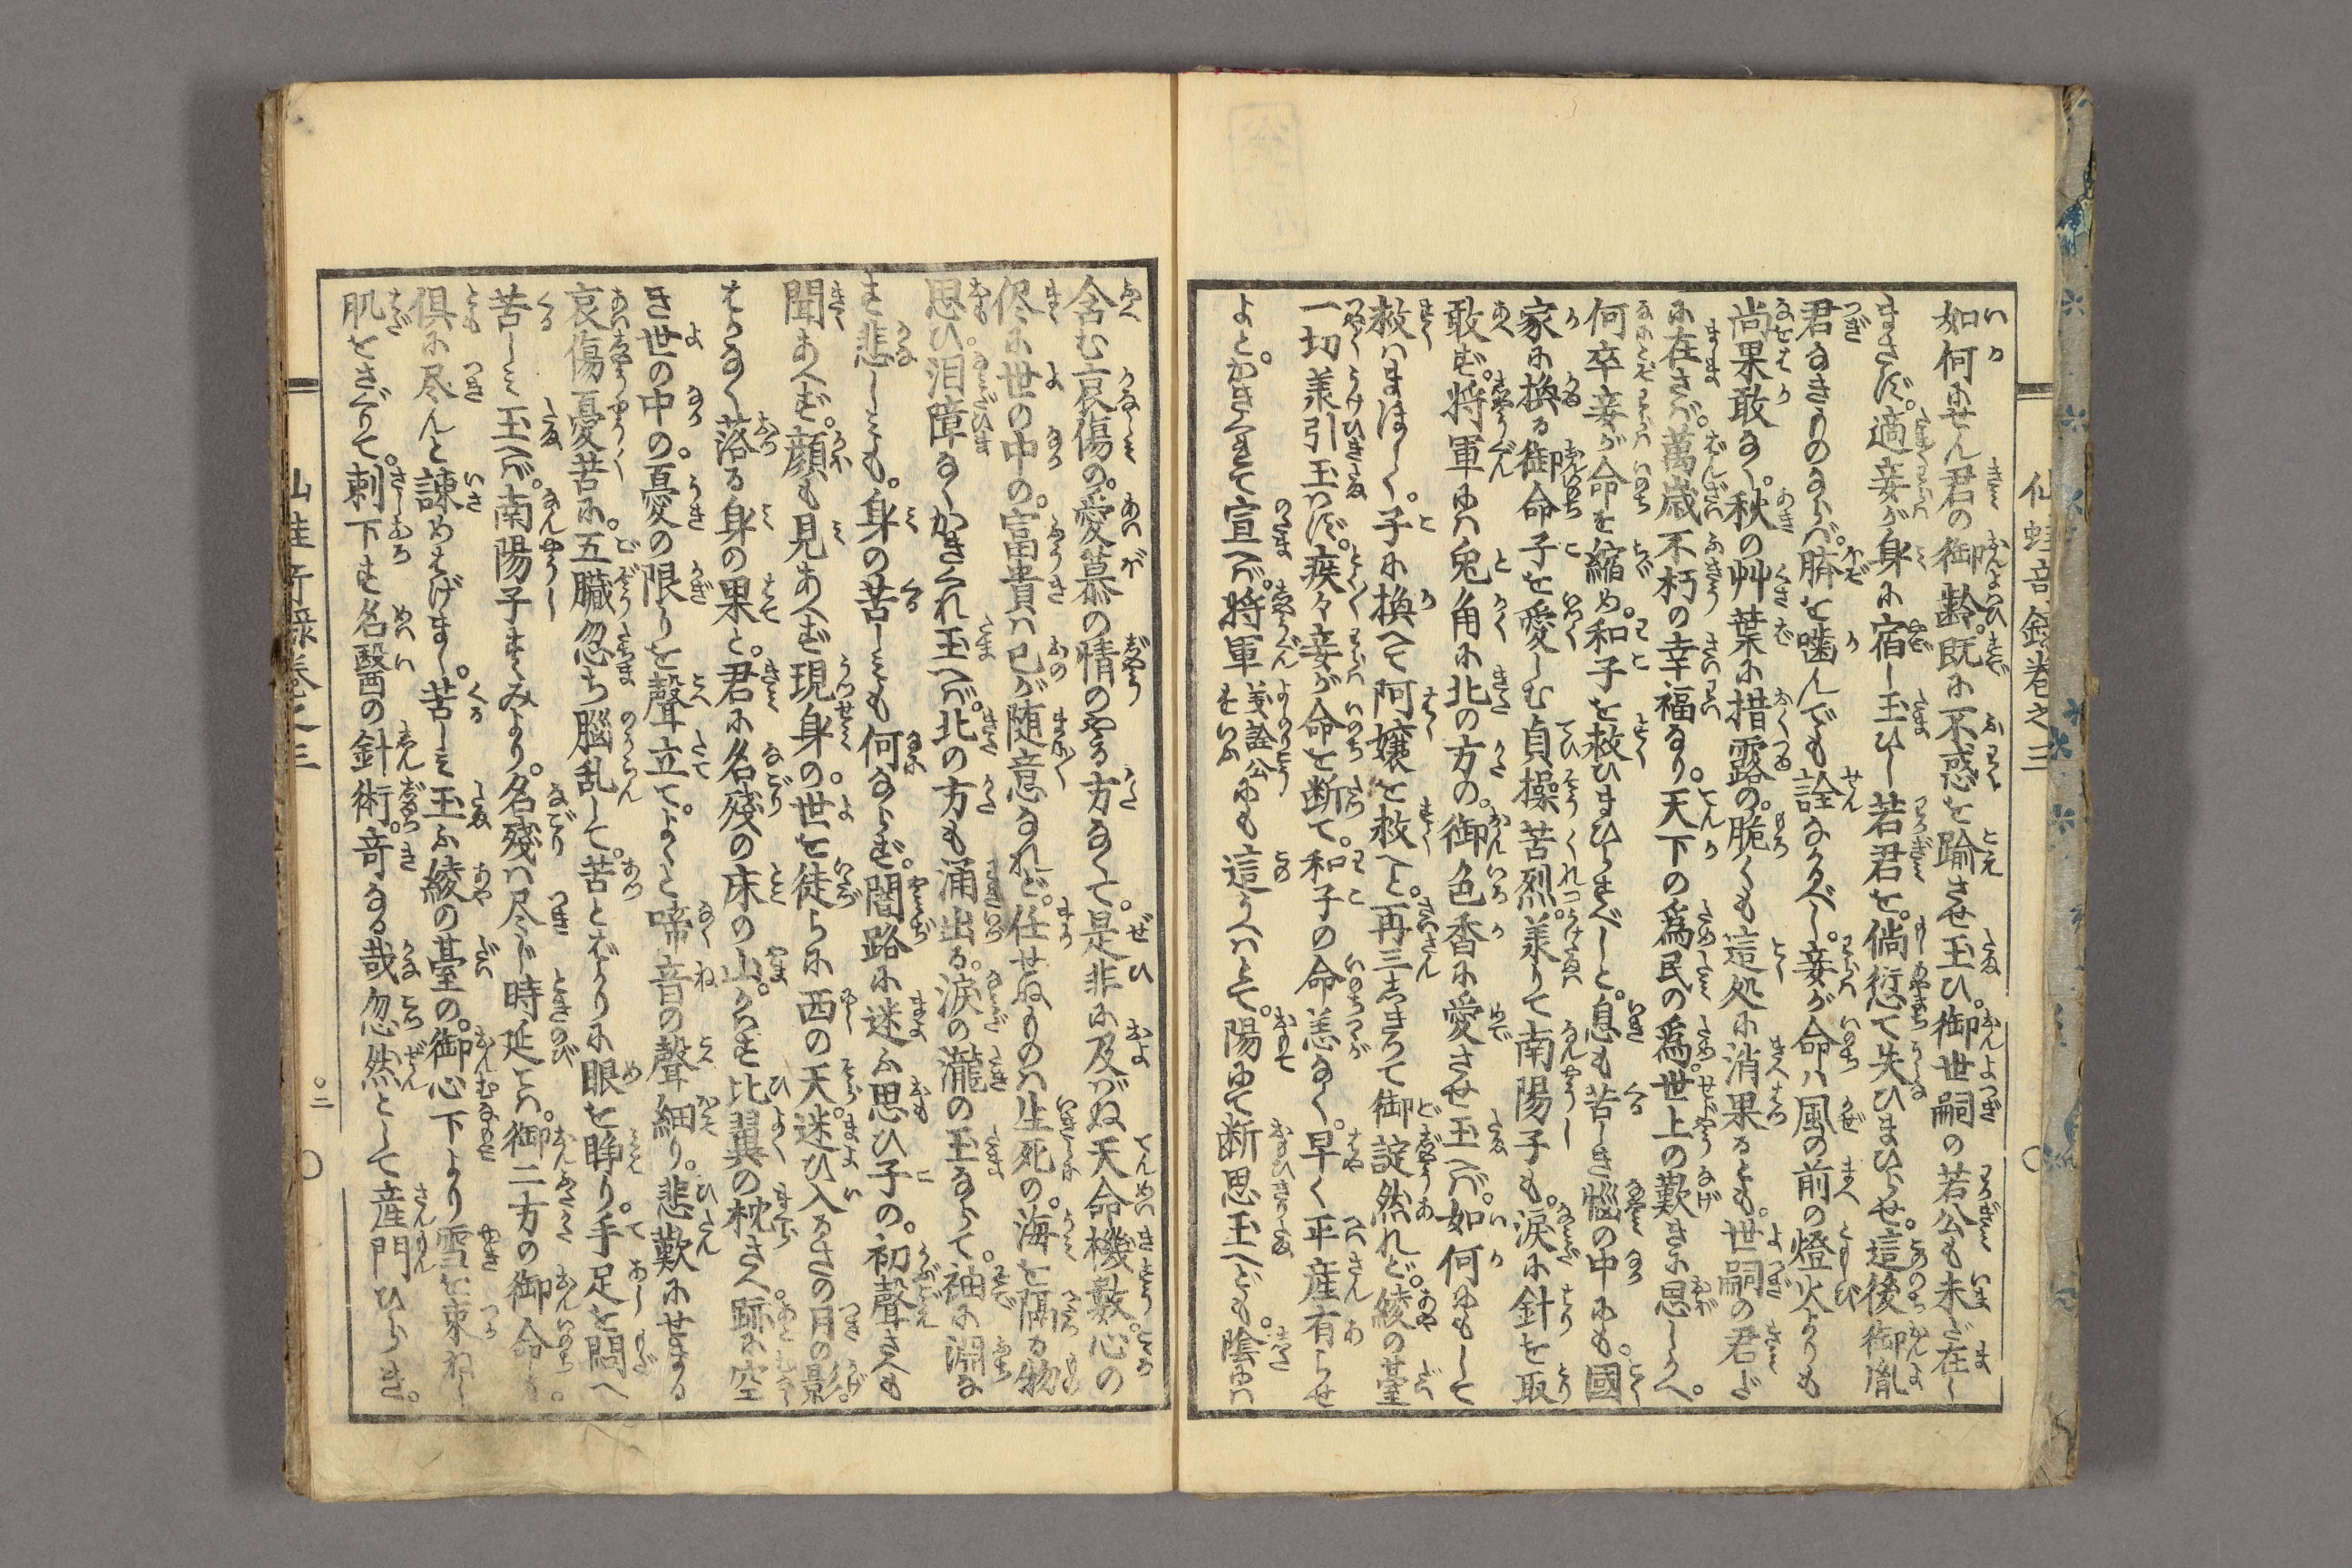 仙蛙奇録巻之三
如何にせん君の御齢。既に不惑を踰させ玉ひ。御世嗣の若公も未だ在し
まさず。適妾が身に宿し玉ひし若君を。倘愆て失ひまひらせ。這後御胤
君なきものならバ。臍を噛んでも詮なかるべし。妾が命ハ風の前の燈火よりも
尚果敢なく。秋の艸葉に措露の。脆くも這処に消果るとも。世嗣の君だ
に在さバ。萬歳不朽の幸福なり。天下の為民の為。世上の歎きに思しかへ。
何卒妾が命を縮め。和子を救ひまひらすべしと。息も苦しき悩の中にも。國
家に換る御命子を愛しむ貞操苦烈。羕りて南陽子も。涙に針を取
敢ず。将軍ハ兎角に北の方の。御色香に愛させ玉へバ。如何にもして
救ハまほしく。子に換へて阿嬢を救へと。再三しきつて御諚然れど。綾の臺
一切羕引玉ハず。疾々妾が命を断て。和子の命恙なく。早く平産有らせ
よと。かきくどきて宣へバ。将軍義詮公にも這うへハとて。陽にて断思玉へども。陰にハ
含む哀傷の。愛慕の情のやる方なくて。是非に及バぬ天命機数。心の
侭に世の中の。富貴ハ己が随意なれど。任せぬものハ生死の。海を隔る物
思ひ。泪障なくかきくれ玉へバ。北の方も涌出る。涙の瀧の玉ならで。袖に淵な
す悲しミも。身の苦しミも何ならず。闇路に迷ふ思ひ子の。初聲さへも
聞あへず。顔も見あへず現身の。世を徒らに西の天。迷ひ入るさの月の影。
はかなく落る身の果と。君に名残の床の山。かハす比翼の枕さへ。跡に空
き世の中の。憂の限りを聲立て。よゝと啼音の聲細り。悲歎にせまる
哀傷憂苦に。五臓忽ち脳乱して。苦とばかりに眼を睁り。手足を悶へ
苦しミ玉へバ。南陽子すゝみより。名残ハ尽ず時延バ。御二方の御命も
倶に尽んと諫めはげまし。苦しミ玉ふ綾の臺の。御心下より雪を束ねし
肌をさぐりて。刺下す名醫の針術。奇なる哉忽然として産門ひらき。
仙蛙奇録巻之三
〇二